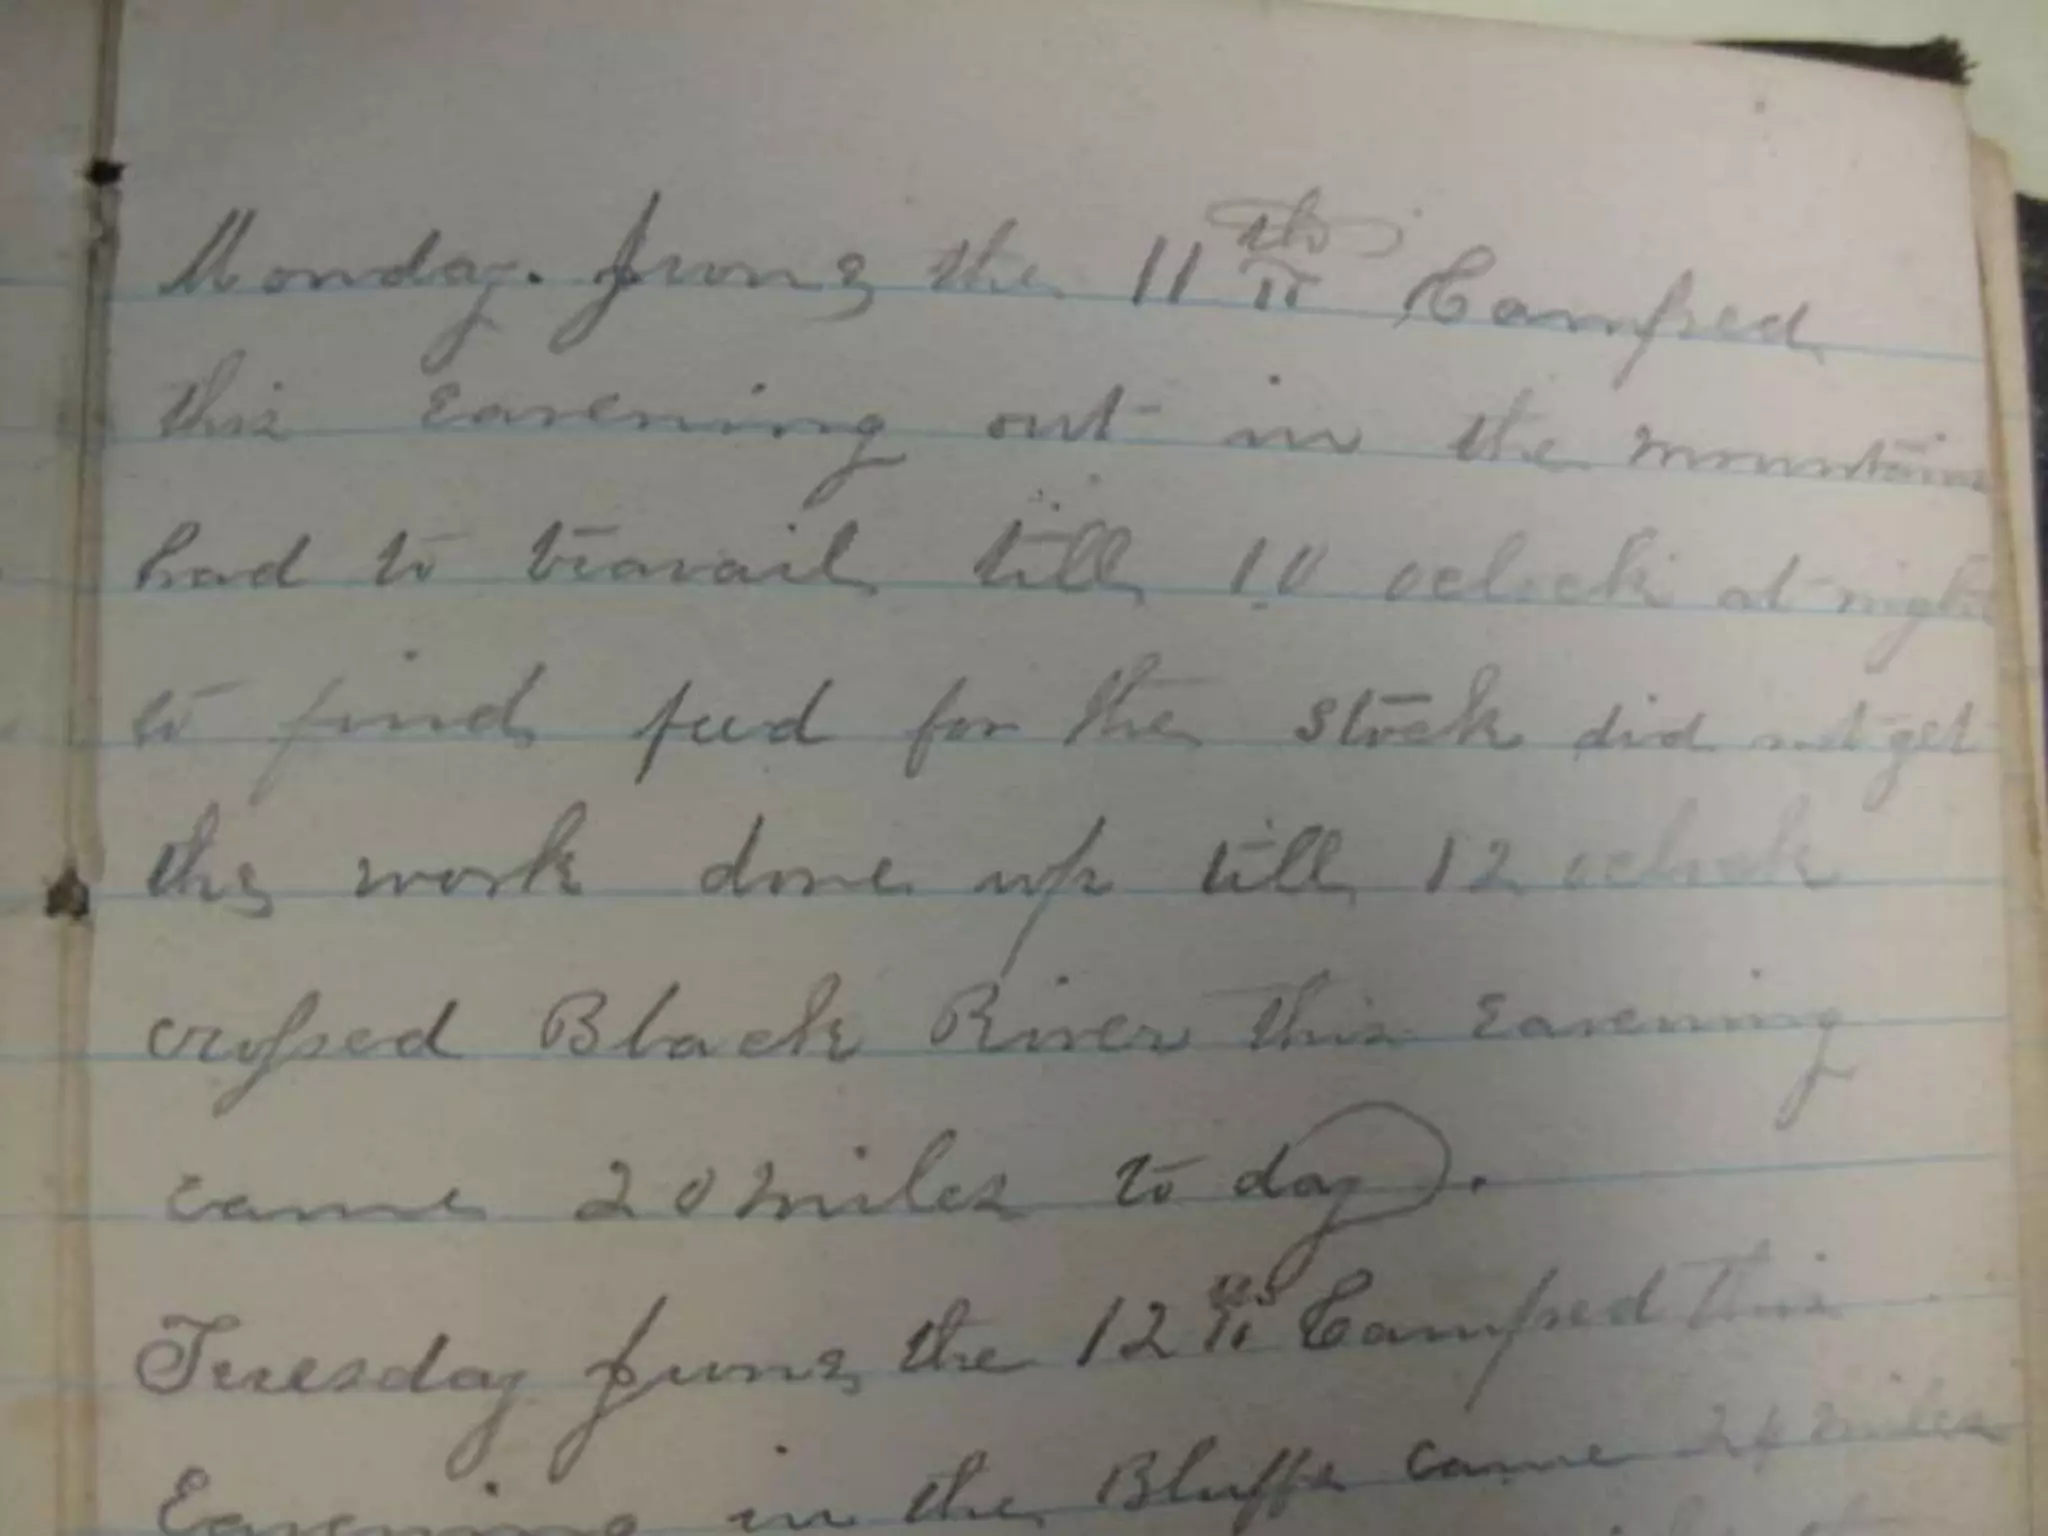 Monday. June the 11th Camped
this Eavening out in the mountains
had to travail till 10 oclock at night
to find feed for the stock did not get
the work done up till 12 oclock
crossed Black River this Eavening
came 20 miles to day.
Tuesday June the 12th Camped this
Eavening in the Bluffs came 24 miles